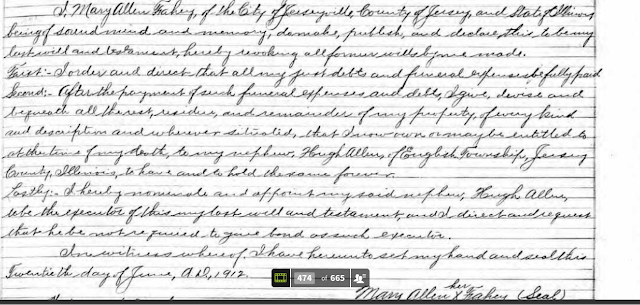 I, Mary Allen Fahey, of the City of Jerseyville, County of Jersey, and State of Illinois,
being of sound mind and memory, do make, publish, and declare, this, to be my
last will and testament, hereby revoking all former wills by me made.
First:- I order and direct that all my just debts and funeral expenses be fully paid
Second:- After the payment of such funeral expenses and debts, I give, devise and
bequeath all the rest, residue, and remainder of my property, of every kind
and description and wherever situated, that I now own or may be entitled to
at the time of my death, to my nephew, Hugh Allen, of English Township, Jersey
County, Illinois, to have and to hold the same forever.
Lastly:- I hereby nominate and appoint my said nephew, Hugh Allen,
to be the executor of this my last will and testament, and I direct and request
that he be not required to give bond as such executor.
In witness whereof, I have hereunto set my hand and seal this
Twentieth day of June, A.D. 1912.
474 of 665
her
Mary Allen X Fahey (Seal)